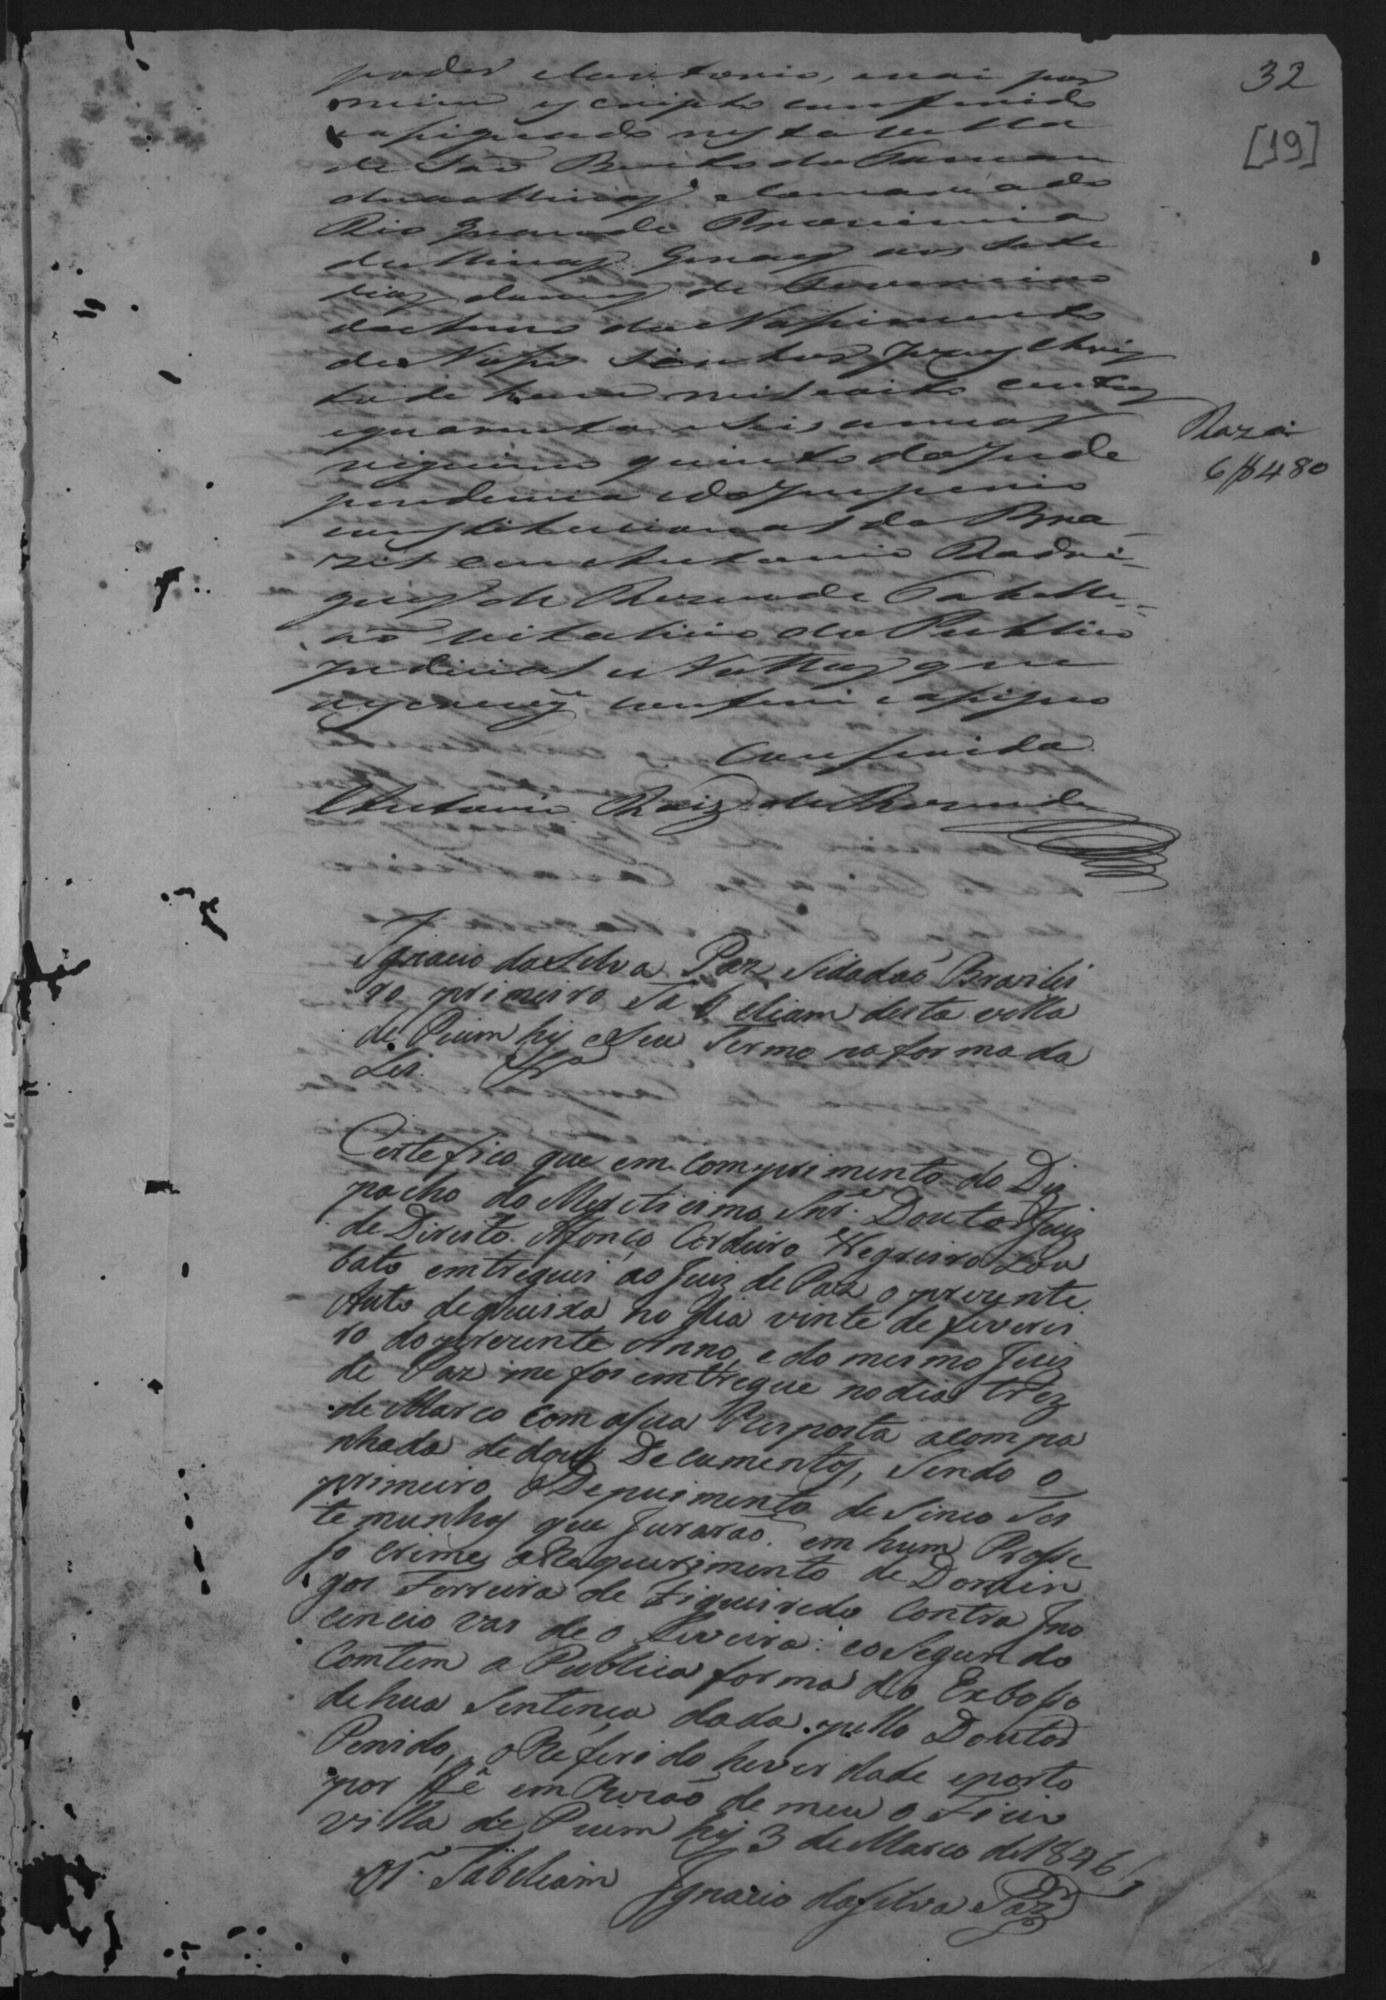 32
[19]
poder e Cartorio, e vai por
mim escripto comferido
e assignado nesta villa
de São Bento do Taman
dua Minas e Comarca do
Rio grande Provincia
de Minas Geraes aos sete
dias do mes de Fevereiro
do Anno do Nascimento
de Nosso Senhor Jezus Chris
to de hum mil e oito centos
e quarenta e seis annos
vigecimo quinto da Inde
pendencia e do Imperio
constitucional do Bra-
zil eu Antonio Rodri-
gues de Rezende Tabelli-
ão vitalicio do Publico
Judicial e Nottas que
escrevy conferi e assigno
Conferida
Antonio Roiz de Rezende
Raza
6$480
Ignacio da Silva Paz Sidadaõ Brazilei
ro primeiro Tabeliam desta villa
de Pium hy e Seu Termo na forma da
Lei. &ª
Certefico que em Comprimento do Diz
pacho do Meretisimo Snr. Doutor Juiz
de Direito Afonço Cordeiro Negreiro Lou
bato emtreguei ao Juiz de Paz o prezente
Auto de queixa no dia vinte de feverei
ro do prezente Anno, e do mesmo Juiz
de Paz me foi emtregue no dia trez
de Marco com a sua Resposta acompa
nhada de dous Documentos, Sendo o
primeiro o Depuimento de Sinco Tes
temunhas que Juraraõ em hum Prosse
so crime a Requerimento de Domin
gos Ferreira de Figueiredo Contra Ino
cencio vas de o Liveira: e o Segundo
Comtem a Publica forma do Exbosso
de hua Sentença dada pello Doutor
Penido, o Referido he verdade e porto
por fê em Rezaõ de meu o Ficio
villa de Pium hy 3 de Marco de 1846
O 1º Tabeliam Ignacio da Silva Paz